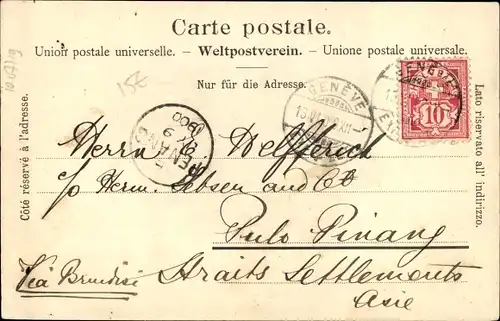 Carte postale.
Union postale universelle. – Weltpostverein. – Unione postale universale.
Nur für die Adresse.
Côté réservé à l'adresse.
Lato riservato all' indirizzo.
15E
GENÈVE
10
PENANG
1900
Herrn C. Helfferich
c/o Herm. Jebsen and Co
Pulo Pinang
Via Brindisi Straits Settlements
Asie